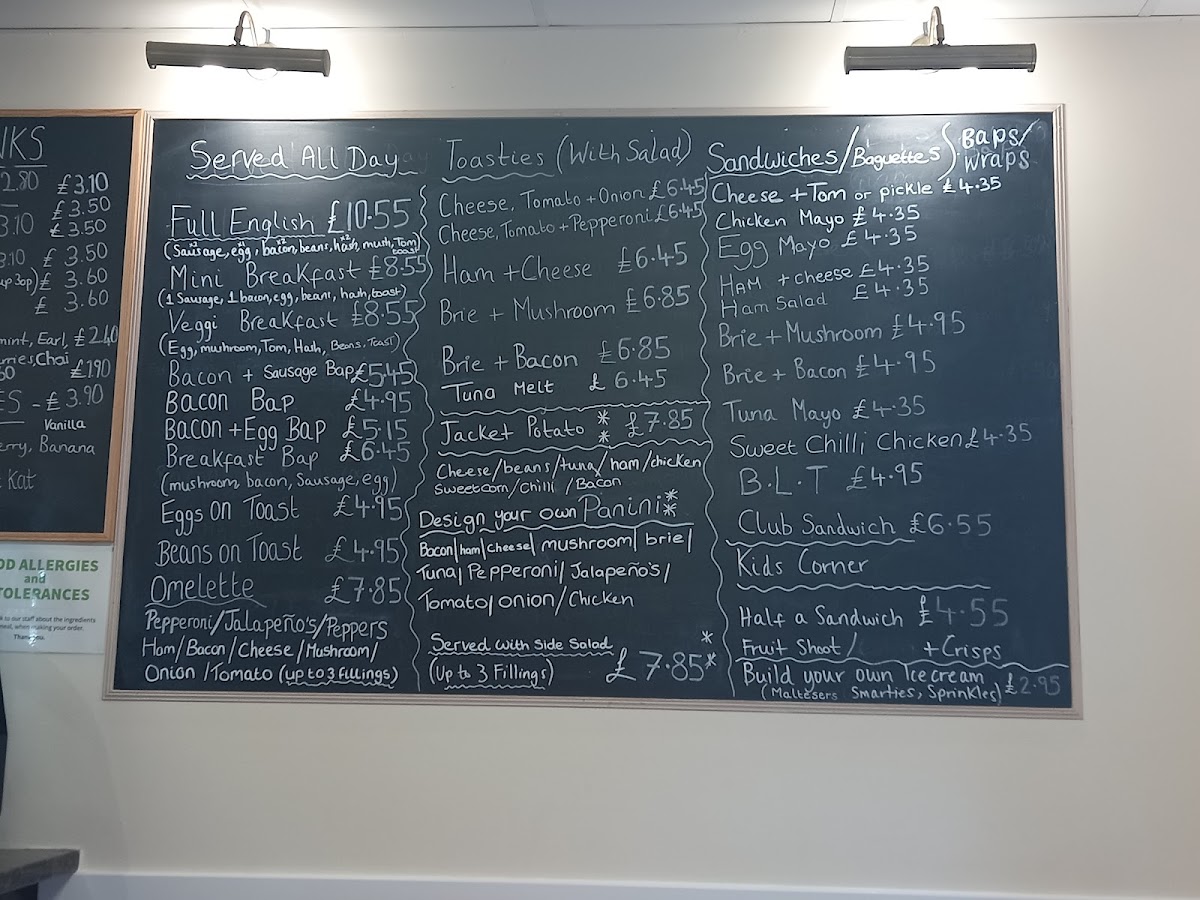 NKS
2.80 £3.10
£3.50
3.10 £3.50
3.10 £3.50
up 30p) £ 3.60
£ 3.60
mint, Earl, £2.40
mes, Chai
£1.90
ES - £3.90
Vanilla
erry, Banana
Kat
OD ALLERGIES
and
TOLERANCES
k to our staff about the ingredients
meal, when making your order.
Thank you.
Served All Day
Full English £10.55
(Sausage x2, egg x1, bacon x2, beans, hash x2, mush, Tom
toast
Mini Breakfast £8.55
(1 Sausage, 1 bacon, egg, beans, hash, toast)
Veggi Breakfast £8.55
(Egg, mushroom, Tom, Hash, Beans, Toast)
Bacon + Sausage Bap £5.45
Bacon Bap £4.95
Bacon + Egg Bap £5.15
Breakfast Bap £6.45
(mushroom, bacon, Sausage, egg)
Eggs on Toast £4.95
Beans on Toast £4.95
Omelette £7.85
Pepperoni/Jalapeño's/Peppers
Ham/Bacon/Cheese/Mushroom/
Onion/Tomato (up to 3 fillings)
Toasties (With Salad)
Cheese, Tomato + Onion £6.45
Cheese, Tomato + Pepperoni £6.45
Ham + Cheese £6.45
Brie + Mushroom £6.85
Brie + Bacon £6.85
Tuna Melt £ 6.45
Jacket Potato ** £7.85
Cheese/beans/tuna/ham/chicken
Sweetcorn/Chilli/Bacon
Design your own Panini **
Bacon|ham|cheese|mushroom|brie|
Tuna|Pepperoni/Jalapeño's/
Tomato|onion/Chicken
Served with Side Salad
(Up to 3 Fillings) £7.85 **
Sandwiches/Baguettes Baps/
Wraps
Cheese + Tom or pickle £4.35
Chicken Mayo £4.35
Egg Mayo £4.35
Ham + cheese £4.35
Ham Salad £4.35
Brie + Mushroom £4.95
Brie + Bacon £4.95
Tuna Mayo £4.35
Sweet Chilli Chicken £4.35
B.L.T £4.95
Club Sandwich £6.55
Kids Corner
Half a Sandwich £4.55
Fruit Shoot/ + Crisps
Build your own Icecream
(Maltesers Smarties, Sprinkles) £2.95